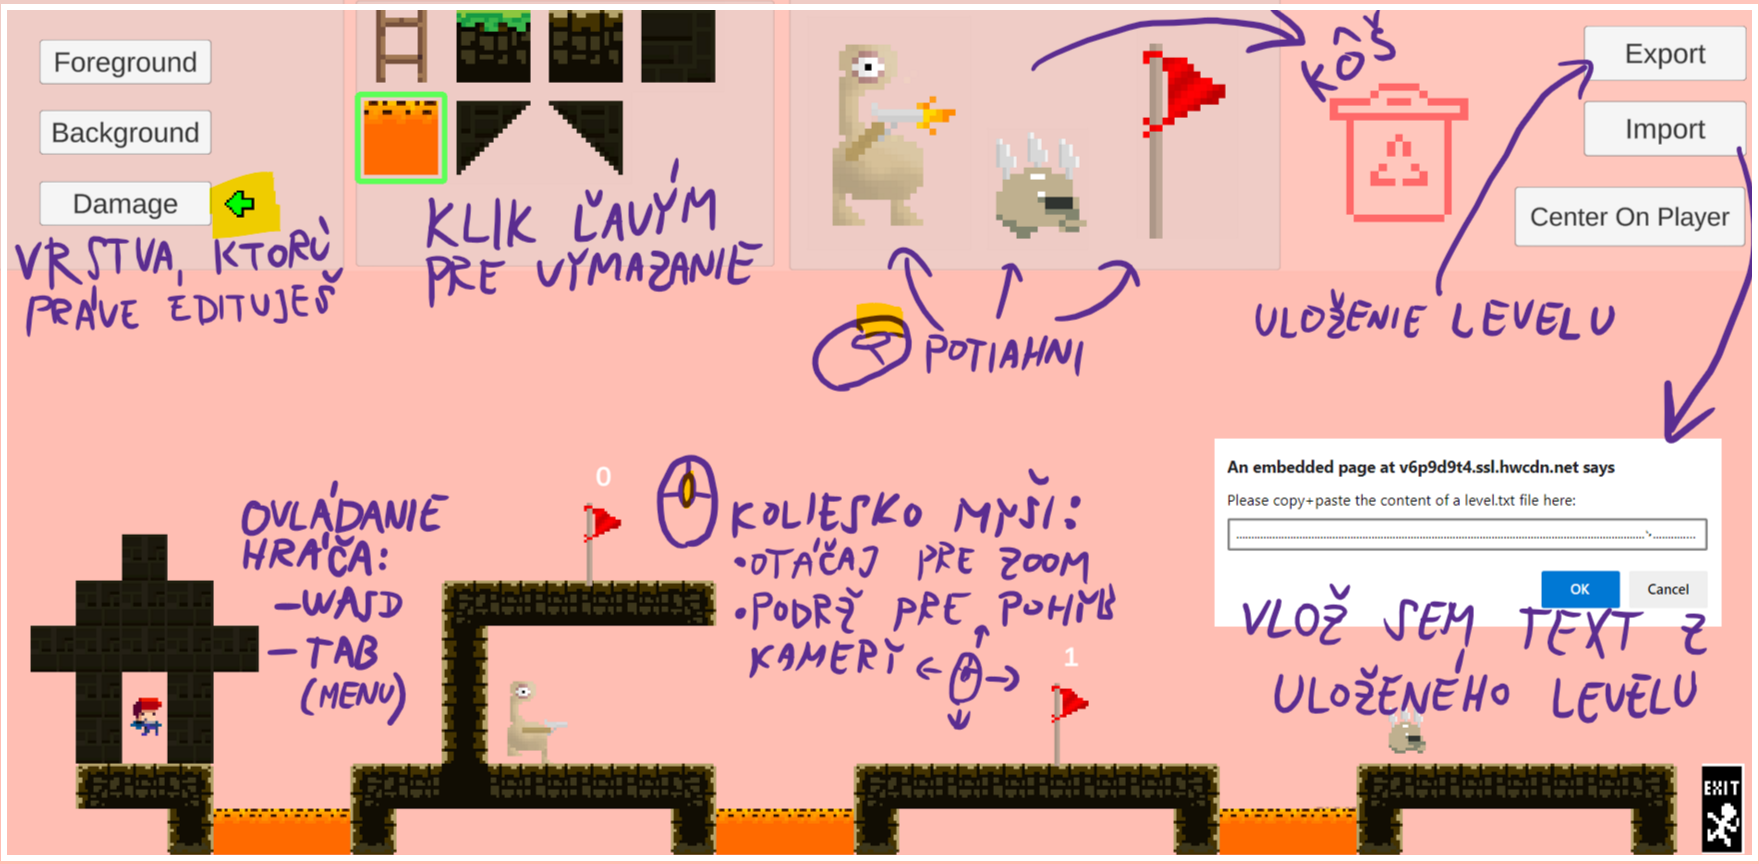 Foreground
Background
Damage
VRSTVA, KTORÚ
PRÁVE EDITUJEŠ
KLIK ĽAVÝM
PRE VYMAZANIE
KÔŠ
Export
Import
Center On Player
ULOŽENIE LEVELU
POTIAHNI
An embedded page at v6p9d9t4.ssl.hwcdn.net says
Please copy+paste the content of a level.txt file here:
OK
Cancel
VLOŽ SEM TEXT Z
ULOŽENÉHO LEVELU
OVLÁDANIE
HRÁČA:
–WASD
–TAB
(MENU)
0
KOLIESKO MYŠI:
•OTÁČAJ PRE ZOOM
•PODRŽ PRE POHYB
KAMERY
1
EXIT